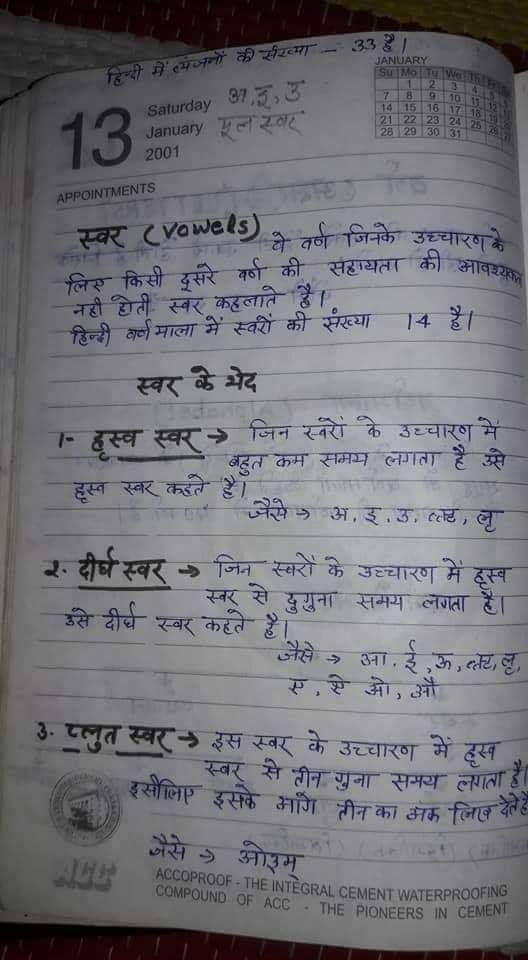 हिन्दी में व्यंजनों की संख्या - 33 है।
JANUARY
Su Mo Tu We Th Fr
1 2 3 4 5
7 8 9 10 11 12
14 15 16 17 18 19
21 22 23 24 25 26
28 29 30 31
13
Saturday
January
2001
अ, इ, उ
मूल स्वर
APPOINTMENTS
स्वर (Vowels) वे वर्ण जिनके उच्चारण के
लिए किसी दूसरे वर्ण की सहायता की आवश्यकता
नही होती स्वर कहलाते है।
हिन्दी वर्ण माला में स्वरों की संख्या 14 है।
स्वर के भेद
1- हृस्व स्वर → जिन स्वरों के उच्चारण में
बहुत कम समय लगता है उसे
हृस्व स्वर कहते है।
जैसे → अ, इ, उ, लृ
2. दीर्घ स्वर → जिन स्वरों के उच्चारण में हृस्व
स्वर से दुगुना समय लगता है।
उसे दीर्घ स्वर कहते है।
जैसे → आ, ई, ऊ,
ए, ऐ ओ, औ
3. प्लुत स्वर → इस स्वर के उच्चारण में हृस्व
स्वर से तीन गुना समय लगता है।
इसीलिए इसके आगे तीन का अंक लिख देते है
जैसे → ओ३म्
ACC
ACCOPROOF - THE INTEGRAL CEMENT WATERPROOFING
COMPOUND OF ACC - THE PIONEERS IN CEMENT